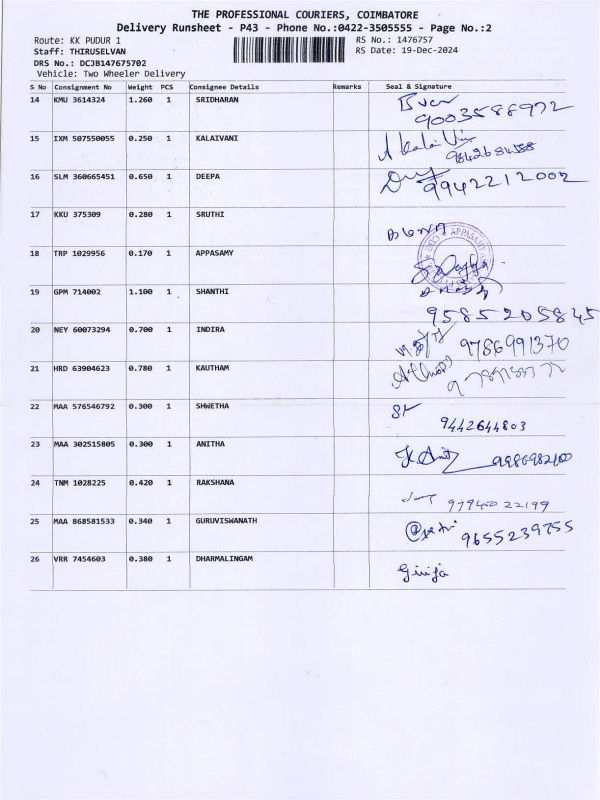 THE PROFESSIONAL COURIERS, COIMBATORE
Delivery Runsheet - P43 - Phone No.:0422-3505555 - Page No.:2
Route: KK PUDUR 1 RS No.: 1476757
Staff: THIRUSELVAN RS Date: 19-Dec-2024
DRS No.: DCJB147675702
Vehicle: Two Wheeler Delivery
S No Consignment No Weight PCS Consignee Details Remarks Seal & Signature
14 KMU 3614324 1.260 1 SRIDHARAN
9003588972
15 IXM 507550055 0.250 1 KALAIVANI
16 SLM 360665451 0.650 1 DEEPA
9942212002
17 KKU 375309 0.280 1 SRUTHI
18 TRP 1029956 0.170 1 APPASAMY
APPASAMY
19 GPM 714002 1.100 1 SHANTHI
9585205845
20 NEY 60073294 0.700 1 INDIRA
9786991370
21 HRD 63904623 0.780 1 KAUTHAM
22 MAA 576546792 0.300 1 SHWETHA
9442644803
23 MAA 302515805 0.300 1 ANITHA
24 TNM 1028225 0.420 1 RAKSHANA
9794022199
25 MAA 868581533 0.340 1 GURUVISWANATH
9655239755
26 VRR 7454603 0.380 1 DHARMALINGAM
Girija